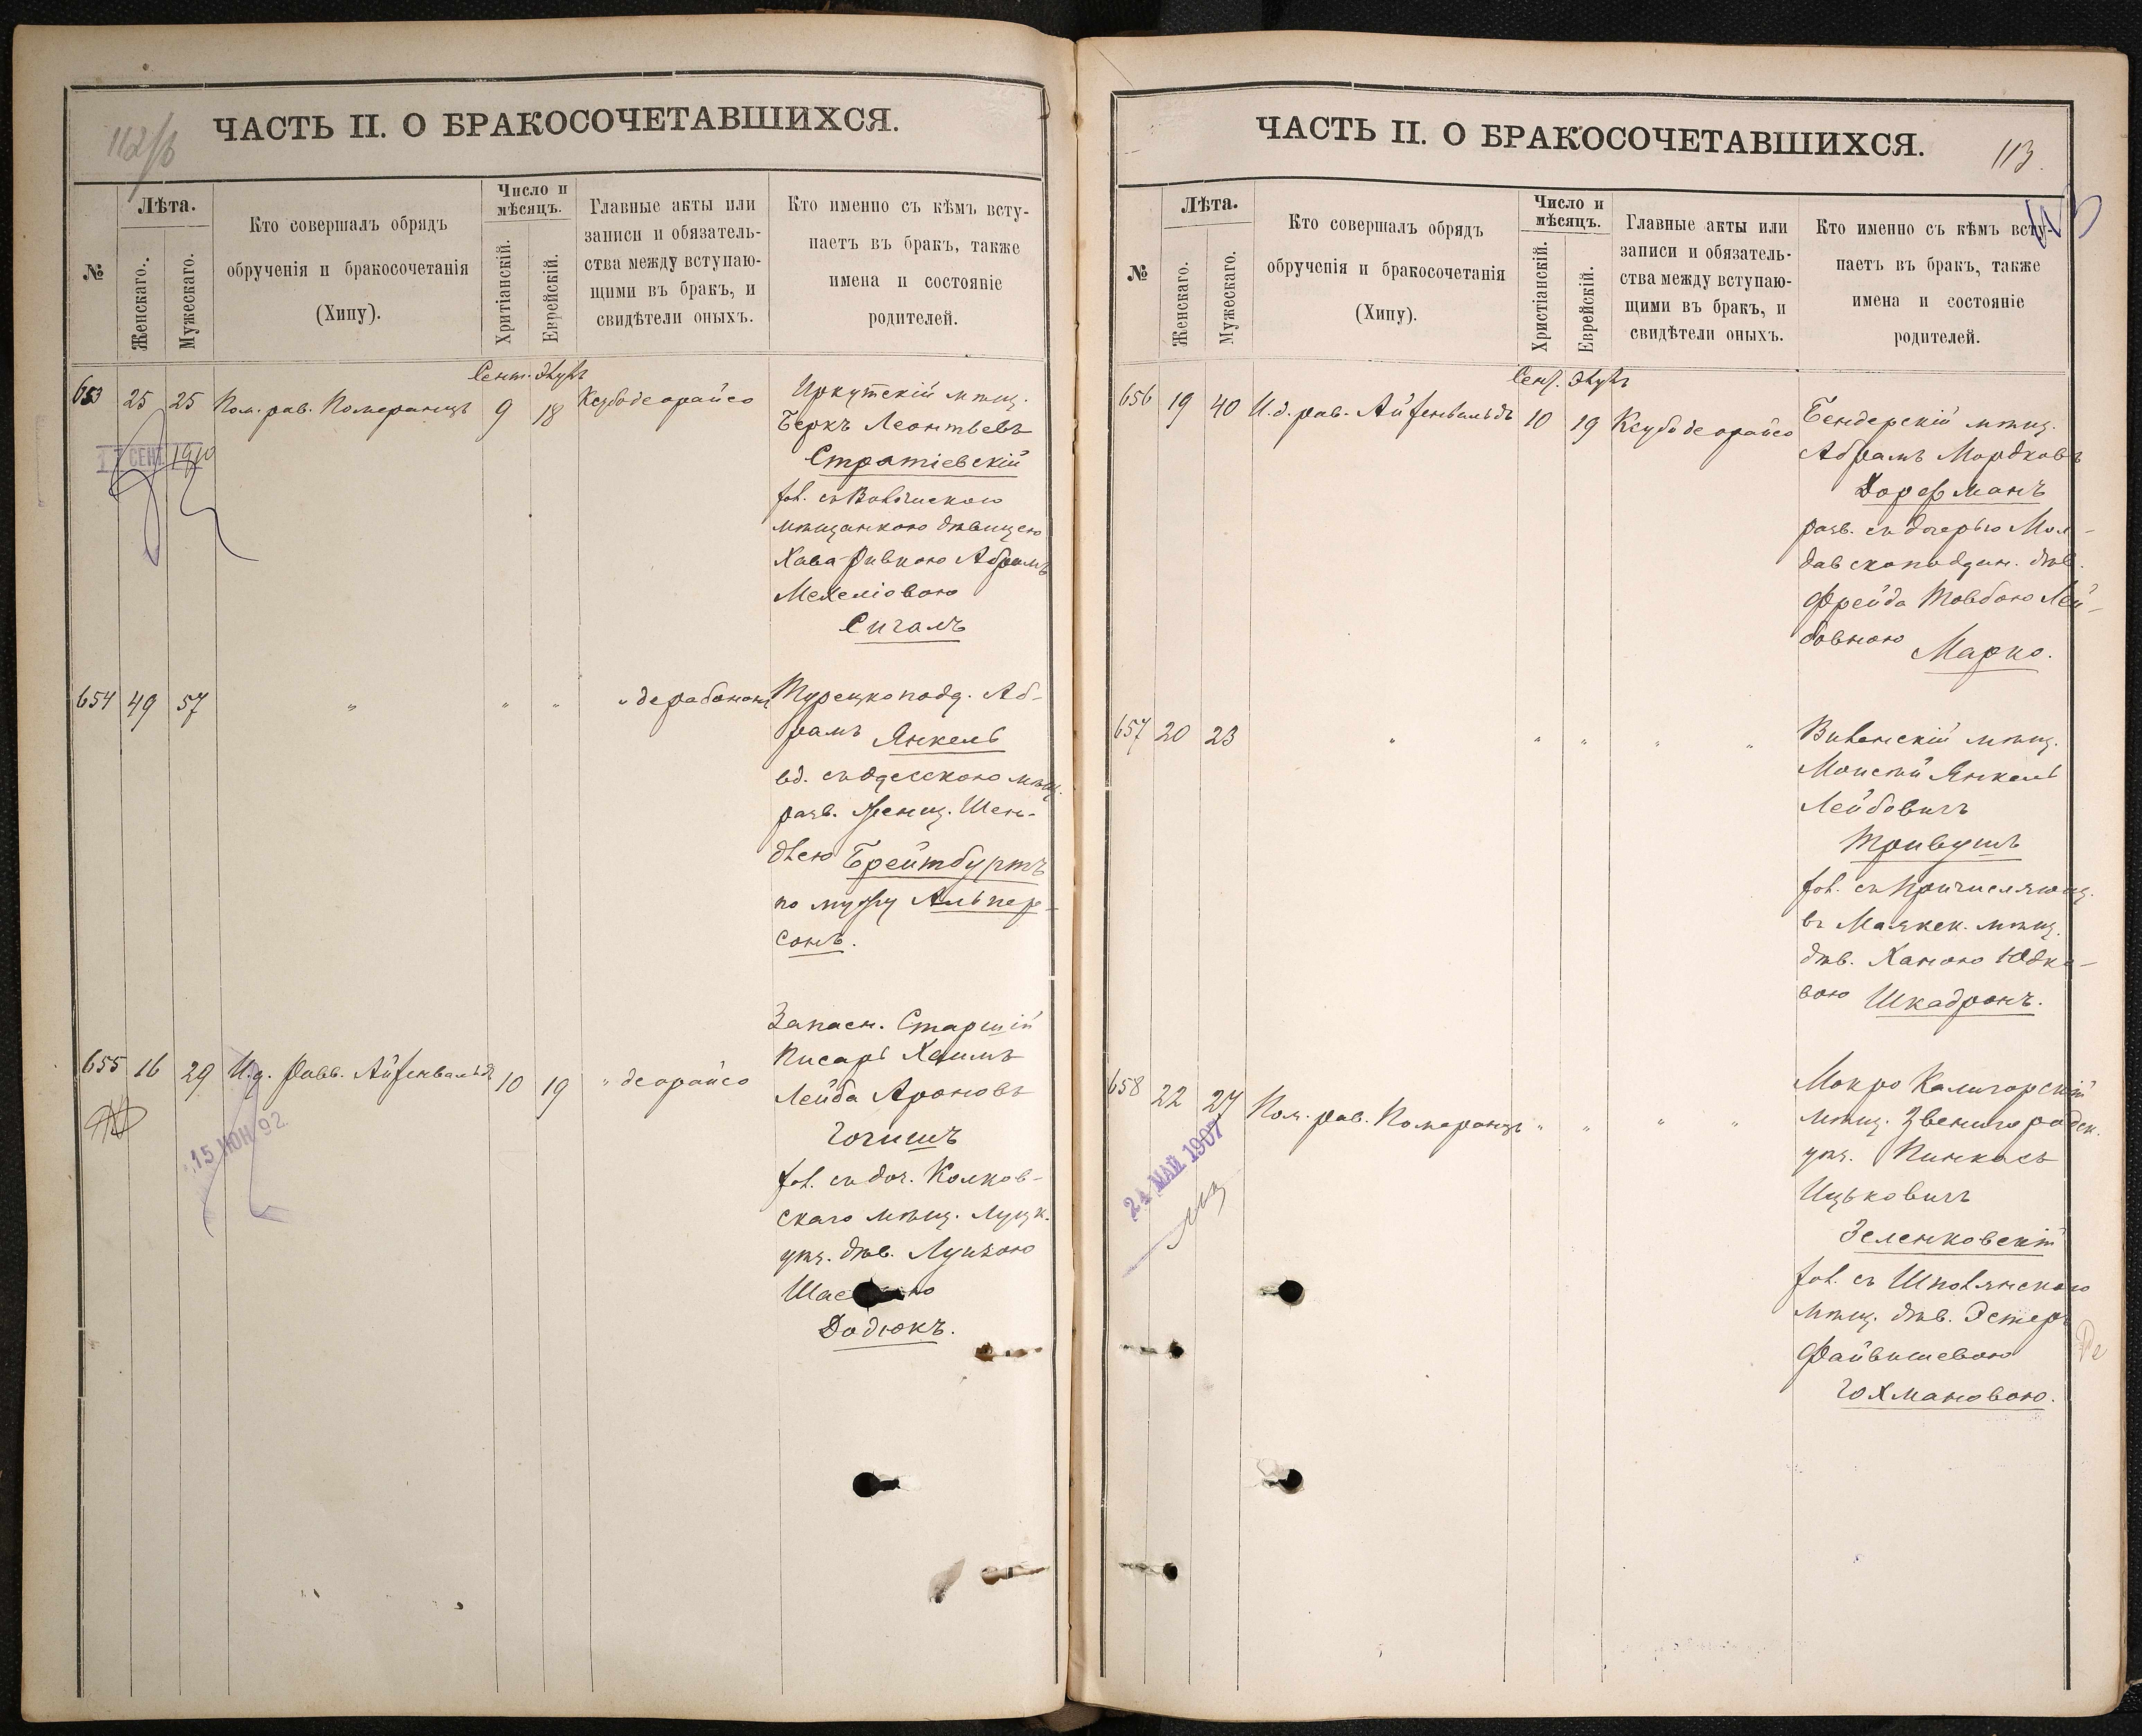 112/б
ЧАСТЬ II. О БРАКОСОЧЕТАВШИХСЯ.
№
Лѣта.
Женскаго.
Мужескаго.
Кто совершалъ обрядъ
обрученія и бракосочетанія
(Хипу).
Число и
мѣсяцъ.
Хритіанскій.
Еврейскій.
Главные акты или
записи и обязатель-
ства между вступаю-
щими въ бракъ, и
свидѣтели оныхъ.
Кто именно съ кѣмъ всту-
паетъ въ бракъ, также
имена и состояніе
родителей.
Сент. Элулъ
653 25 25 Пом. рав. Померанцъ 9 18 Ксубо деорайсо
Иркутскій мѣщ.
Беркъ Леонтьевъ
Стратіевскій
хол. съ
мѣщанкою дѣвицею
Хава Ривкою Абрамъ
Мехеліовою
Сигалъ
СЕНТ. 1910
654 49 57 " " " " дерабонон
Турецкоподд. Аб-
рамъ Янкель
вд. съ Одесскою мѣщ.
разв. женщ. Шень-
длею Брейтбуртъ
по мужу Альпер-
сонъ.
655 16 29 И.д. Равв. Айзенвальдъ 10 19 " деорайсо
Запасн. Старшій
Писарь Хаимъ
Лейба Ароновъ
Гогишъ
хол. съ доч. Колков-
скаго мѣщ. Луцк.
уѣз. дѣв. Луизою
Додюкъ.
15 ИЮН 92
ЧАСТЬ II. О БРАКОСОЧЕТАВШИХСЯ.
113.
113
№
Лѣта.
Женскаго.
Мужескаго.
Кто совершалъ обрядъ
обрученія и бракосочетанія
(Хипу).
Число и
мѣсяцъ.
Христіанскій.
Еврейскій.
Главные акты или
записи и обязатель-
ства между вступаю-
щими въ бракъ, и
свидѣтели оныхъ.
Кто именно съ кѣмъ всту-
паетъ въ бракъ, также
имена и состояніе
родителей.
Сент. Элулъ
656 19 40 И.д. рав. Айзенвальдъ 10 19 Ксубо деорайсо
Бендерскій мѣщ.
Абрамъ Мордковъ
Дорфманъ
разв. съ дочерью Мол-
давскоподдан. дѣв.
Фрейда Товбою Лей-
бовною Марко.
657 20 23 " " " " "
Виленскій мѣщ.
Моисей Янкель
Лейбовичъ
Тривушъ
хол. съ причисляющ.
въ Маякск. мѣщ.
дѣв. Ханою Юдко-
вою Шкадронъ.
658 22 27 Пом. рав. Померанцъ " " " "
Мокро Калигорскій
мѣщ. Звенигородск.
уѣз. Пинхасъ
Ицьковичъ
Зеленковскій
хол. съ Шполянскою
мѣщ. дѣв. Эстеръ
Файвишевою
Гохмановою.
24 МАЙ 1907